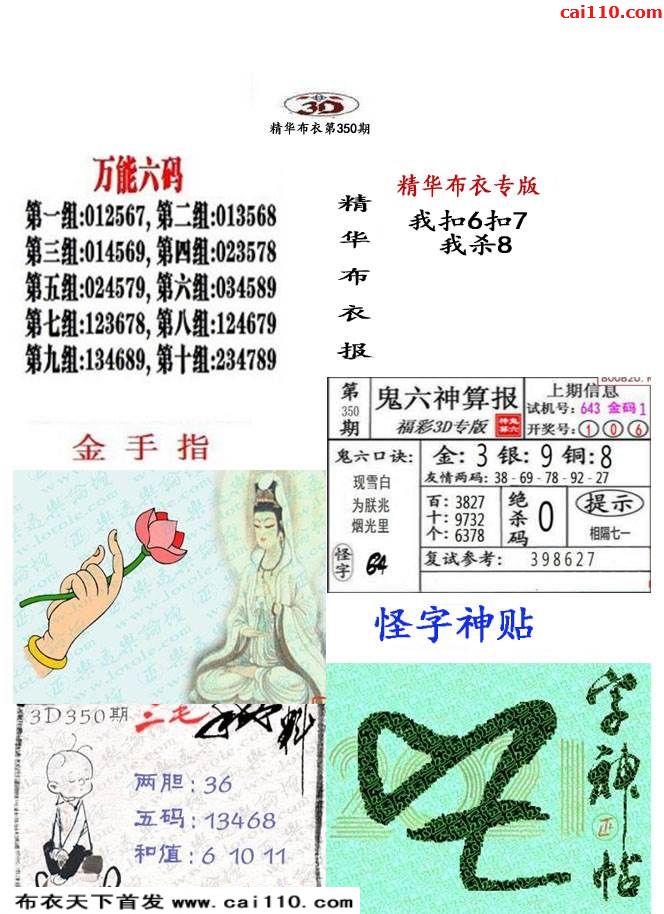 cai110.com
3D
精华布衣第350期
万能六码
第一组:012567, 第二组:013568
第三组:014569, 第四组:023578
第五组:024579, 第六组:034589
第七组:123678, 第八组:124679
第九组:134689, 第十组:234789
精华布衣报
精华布衣专版
我扣6扣7
我杀8
金手指
第350期
鬼六神算报
福彩3D专版
上期信息
试机号: 643 金码1
开奖号: 1 0 6
鬼六口诀:
现雪白
为朕兆
烟光里
怪字
金: 3 银: 9 铜: 8
友情两码: 38 - 69 - 78 - 92 - 27
百: 3827
十: 9732
个: 6378
绝杀码 0
提示
相隔七一
复试参考: 398627
怪字神贴
3D350期 三毛
两胆: 36
五码: 13468
和值: 6 10 11
字神帖
布衣天下首发 www.cai110.com